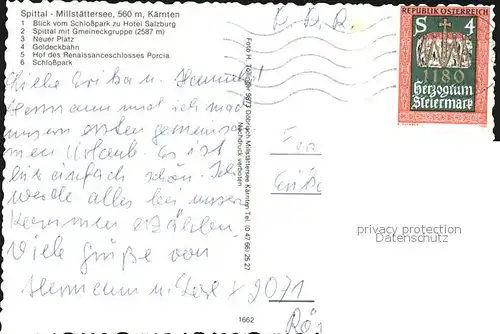 Spittal - Millstättersee, 560 m, Kärnten
1 Blick vom Schloßpark zu Hotel Salzburg
2 Spittal mit Gmeineckgruppe (2587 m)
3 Neuer Platz
4 Goldeckbahn
5 Hof des Renaissanceschlosses Porcia
6 Schloßpark
Liebe Erika u.
Hermann und ich machen
unseren ersten gemeinsa-
men Urlaub. Es ist
einfach schön. Ich
werde alles bei unserem
Kommen erzählen.
Viele Grüße von
Hermann u.
1662
Foto H. 9873 Döbriach Millstättersee Kärnten Tel. (0 47 66) 25 27
Nachdruck verboten
REPUBLIK ÖSTERREICH
S 4
1180
Herzogtum
Steiermark
Erika
2071
privacy protection
Datenschutz